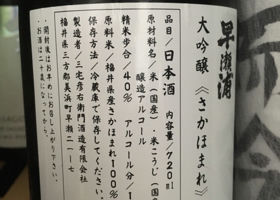 早瀬浦
大吟醸《さかほまれ》
品目/日本酒 内容量/720ml
原材料名/米(国産)・米こうじ(国産
醸造アルコール
精米歩合/40% アルコール分/1
原料米/福井県産さかほまれ100%
保存方法/冷蔵庫で保存してください。
製造者/三宅彦右衛門酒造有限会社
福井県三方郡美浜町早瀬二一ー七
・開封後はお早めにお召し上がり下さい。
・お酒は二十歳になってから。